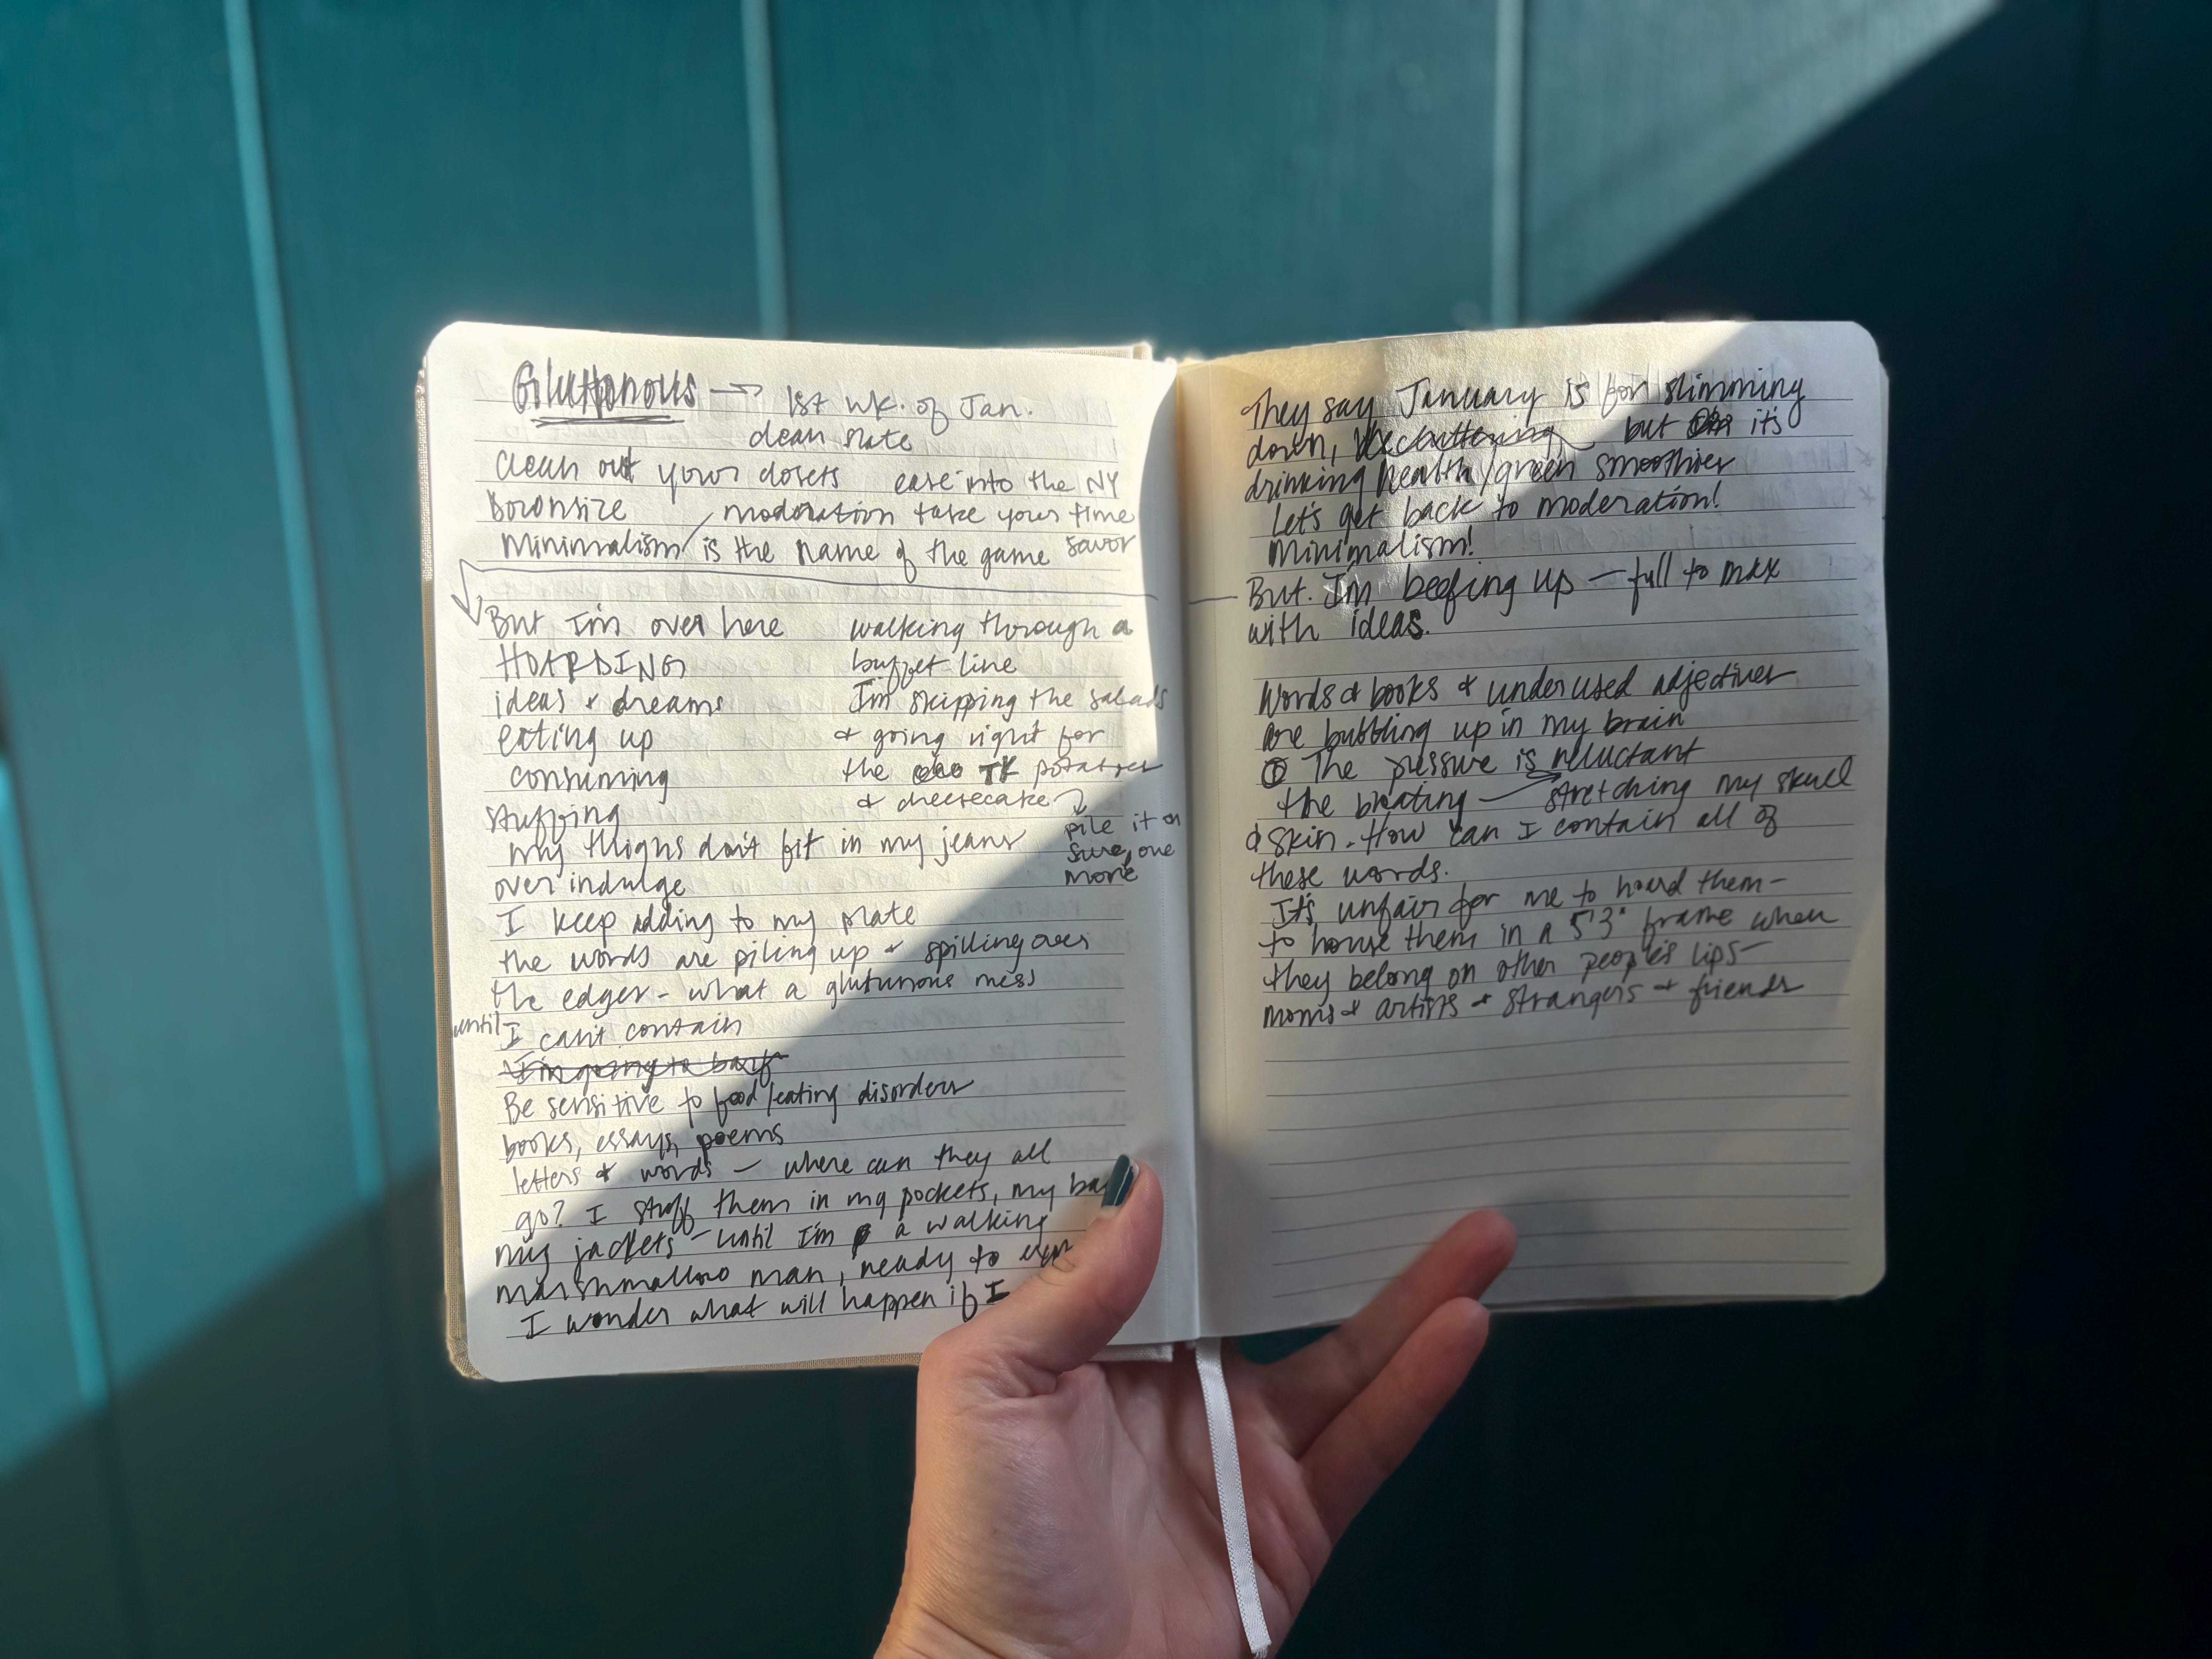 Gluttonous → 1st wk. of Jan.
clean slate
Clean out your closets ease into the NY
Downsize / moderation take your time
Minimalism / is the name of the game savor
But I'm over here
HOARDING
ideas + dreams
eating up
consuming
stuffing
walking through a
buffet line
I'm skipping the salads
& going right for
the TK potatoes
& cheesecake
pile it on
sure, one
more
my thighs don't fit in my jeans
over indulge
I keep adding to my plate
the words are piling up + spilling over
the edges - what a glutunous mess
until I can't contain
I'm going to barf
Be sensitive to food/eating disorders
books, essays, poems
letters & words – where can they all
go? I stuff them in my pockets, my
my jackets – until I'm a walking
marshmallow man, ready to
I wonder what will happen if I
They say January is for slimming
down, decluttering but it's
drinking health/green smoothies
Let's get back to moderation!
Minimalism!
But. I'm beefing up – full to max
with ideas.
Words & books & underused adjectives
are bubbling up in my brain
The pressure is reluctant
the bloating → stretching my skull
& skin. How can I contain all of
these words.
It's unfair for me to hoard them –
to house them in a 5'3" frame when
they belong on other people's lips –
moms + artists + strangers + friends